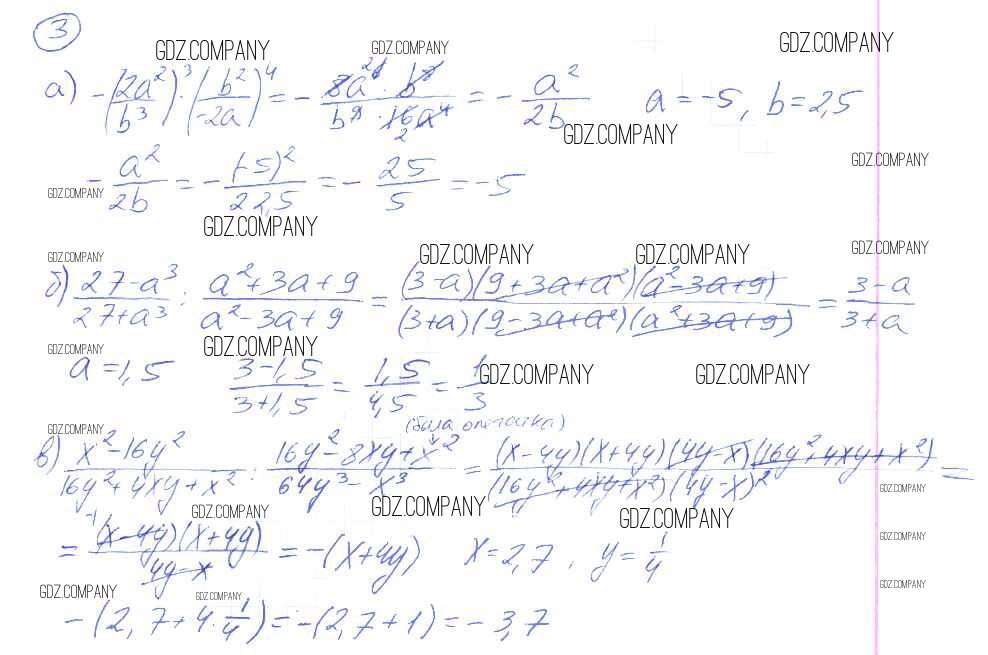 3
GDZ.COMPANY GDZ.COMPANY GDZ.COMPANY
а) -(2a²/b³)³·(b²/-2a)⁴ = - 8a⁶·b⁸/b⁹·16a⁴ = - a²/2b a = -5, b = 2,5
GDZ.COMPANY
GDZ.COMPANY
- a²/2b = - (-5)²/2·2,5 = - 25/5 = -5
GDZ.COMPANY
GDZ.COMPANY
GDZ.COMPANY GDZ.COMPANY GDZ.COMPANY GDZ.COMPANY
б) 27-a³/27+a³ : a²+3a+9/a²-3a+9 = (3-a)(9+3a+a²)(a²-3a+9)/(3+a)(9-3a+a²)(a²+3a+9) = 3-a/3+a
GDZ.COMPANY GDZ.COMPANY
a = 1,5 3-1,5/3+1,5 = 1,5/4,5 = 1/3
GDZ.COMPANY GDZ.COMPANY
GDZ.COMPANY (была опечатка)
в) x²-16y²/16y²+4xy+x² : 16y²-8xy+x²/64y³-x³ = (x-4y)(x+4y)(4y-x)(16y²+4xy+x²)/(16y²+4xy+x²)(4y-x)² =
GDZ.COMPANY
GDZ.COMPANY GDZ.COMPANY GDZ.COMPANY
= -1 (x-4y)(x+4y)/4y-x = -(x+4y) x = 2,7, y = 1/4
GDZ.COMPANY
GDZ.COMPANY GDZ.COMPANY GDZ.COMPANY
-(2,7+4·1/4) = -(2,7+1) = -3,7